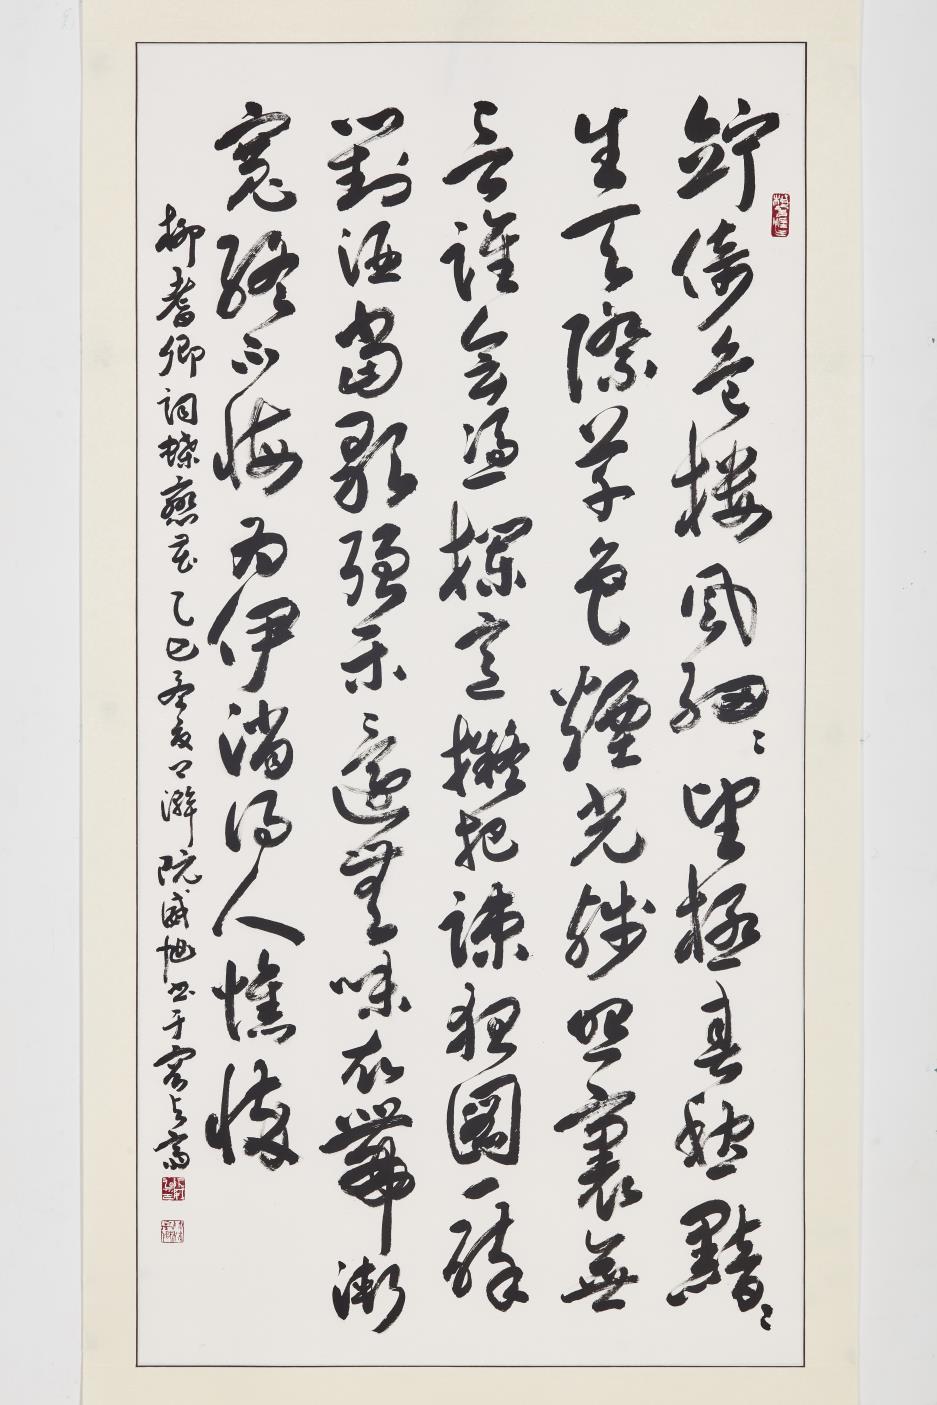 竚倚危樓風細〻望極春愁黯〻
生天際草色煙光殘照裏無
言誰會憑欄意擬把疎狂圖一醉
對酒當歌強樂還無味衣帶漸
寬終不悔為伊消得人憔悴
柳耆卿詞蝶戀花 乙巳 夏 阮威旭書于 齋